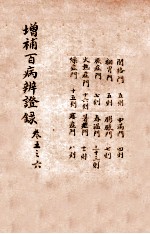 關格門 五則 中滿門 四則
翻胃門 五則 臌脹門 七則
厥症門 七則 春溫門 三十三則
火熱症門 十六則 暑症門 十一則
燥症門 十五則 痿症門 八則
增補百病辨證錄 卷五之六